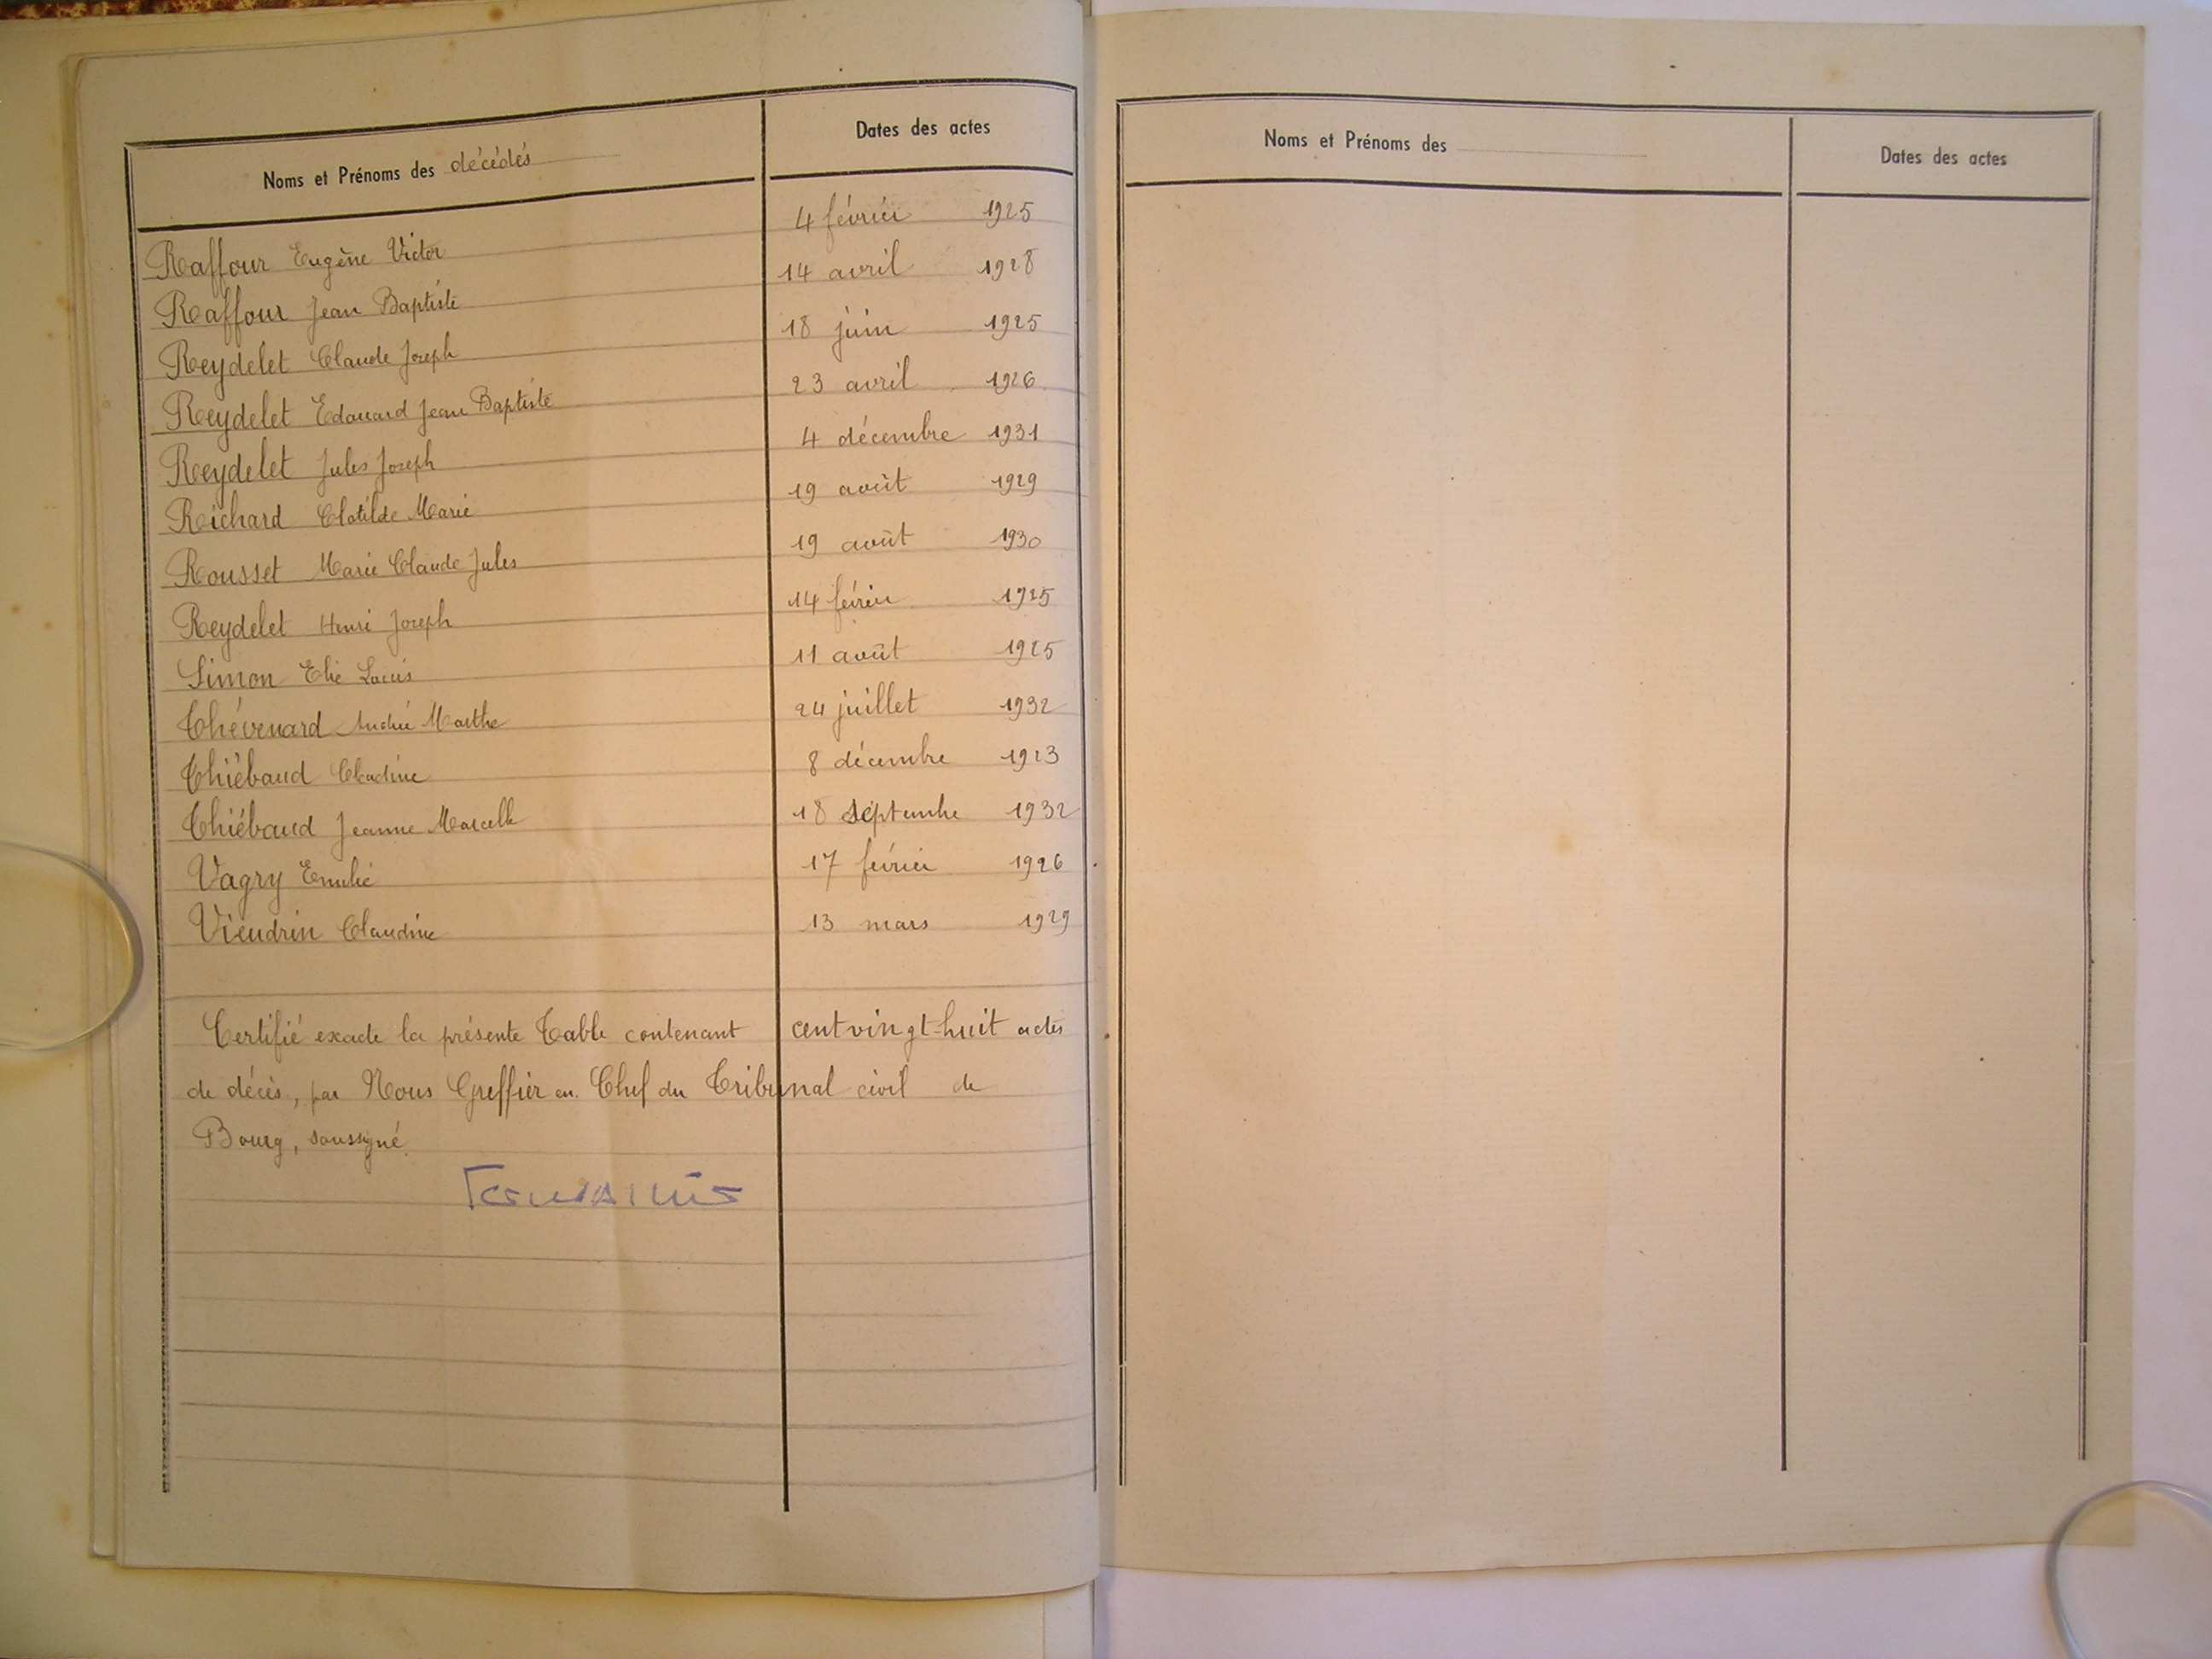 Noms et Prénoms des décédés Dates des actes
Raffour Eugène Victor 4 février 1925
Raffour Jean Baptiste 14 avril 1928
Reydelet Claude Joseph 18 juin 1925
Reydelet Edouard Jean Baptiste 23 avril 1926
Reydelet Jules Joseph 4 décembre 1931
Richard Clotilde Marie 19 août 1929
Rousset Marie Claude Jules 19 août 1930
Reydelet Henri Joseph 14 février 1925
Simon Elie Louis 11 août 1925
Thévenard Marthe 24 juillet 1932
Thiébaud Claudine 8 décembre 1923
Thiébaud Jeanne Marcelle 18 septembre 1932
Vagry Emilie 17 février 1926
Vieudrin Claudine 13 mars 1929
Certifié exacte la présente Table contenant cent vingt-huit actes
de décès, par Nous Greffier en Chef du Tribunal civil de
Bourg, soussigné.
Noms et Prénoms des Dates des actes